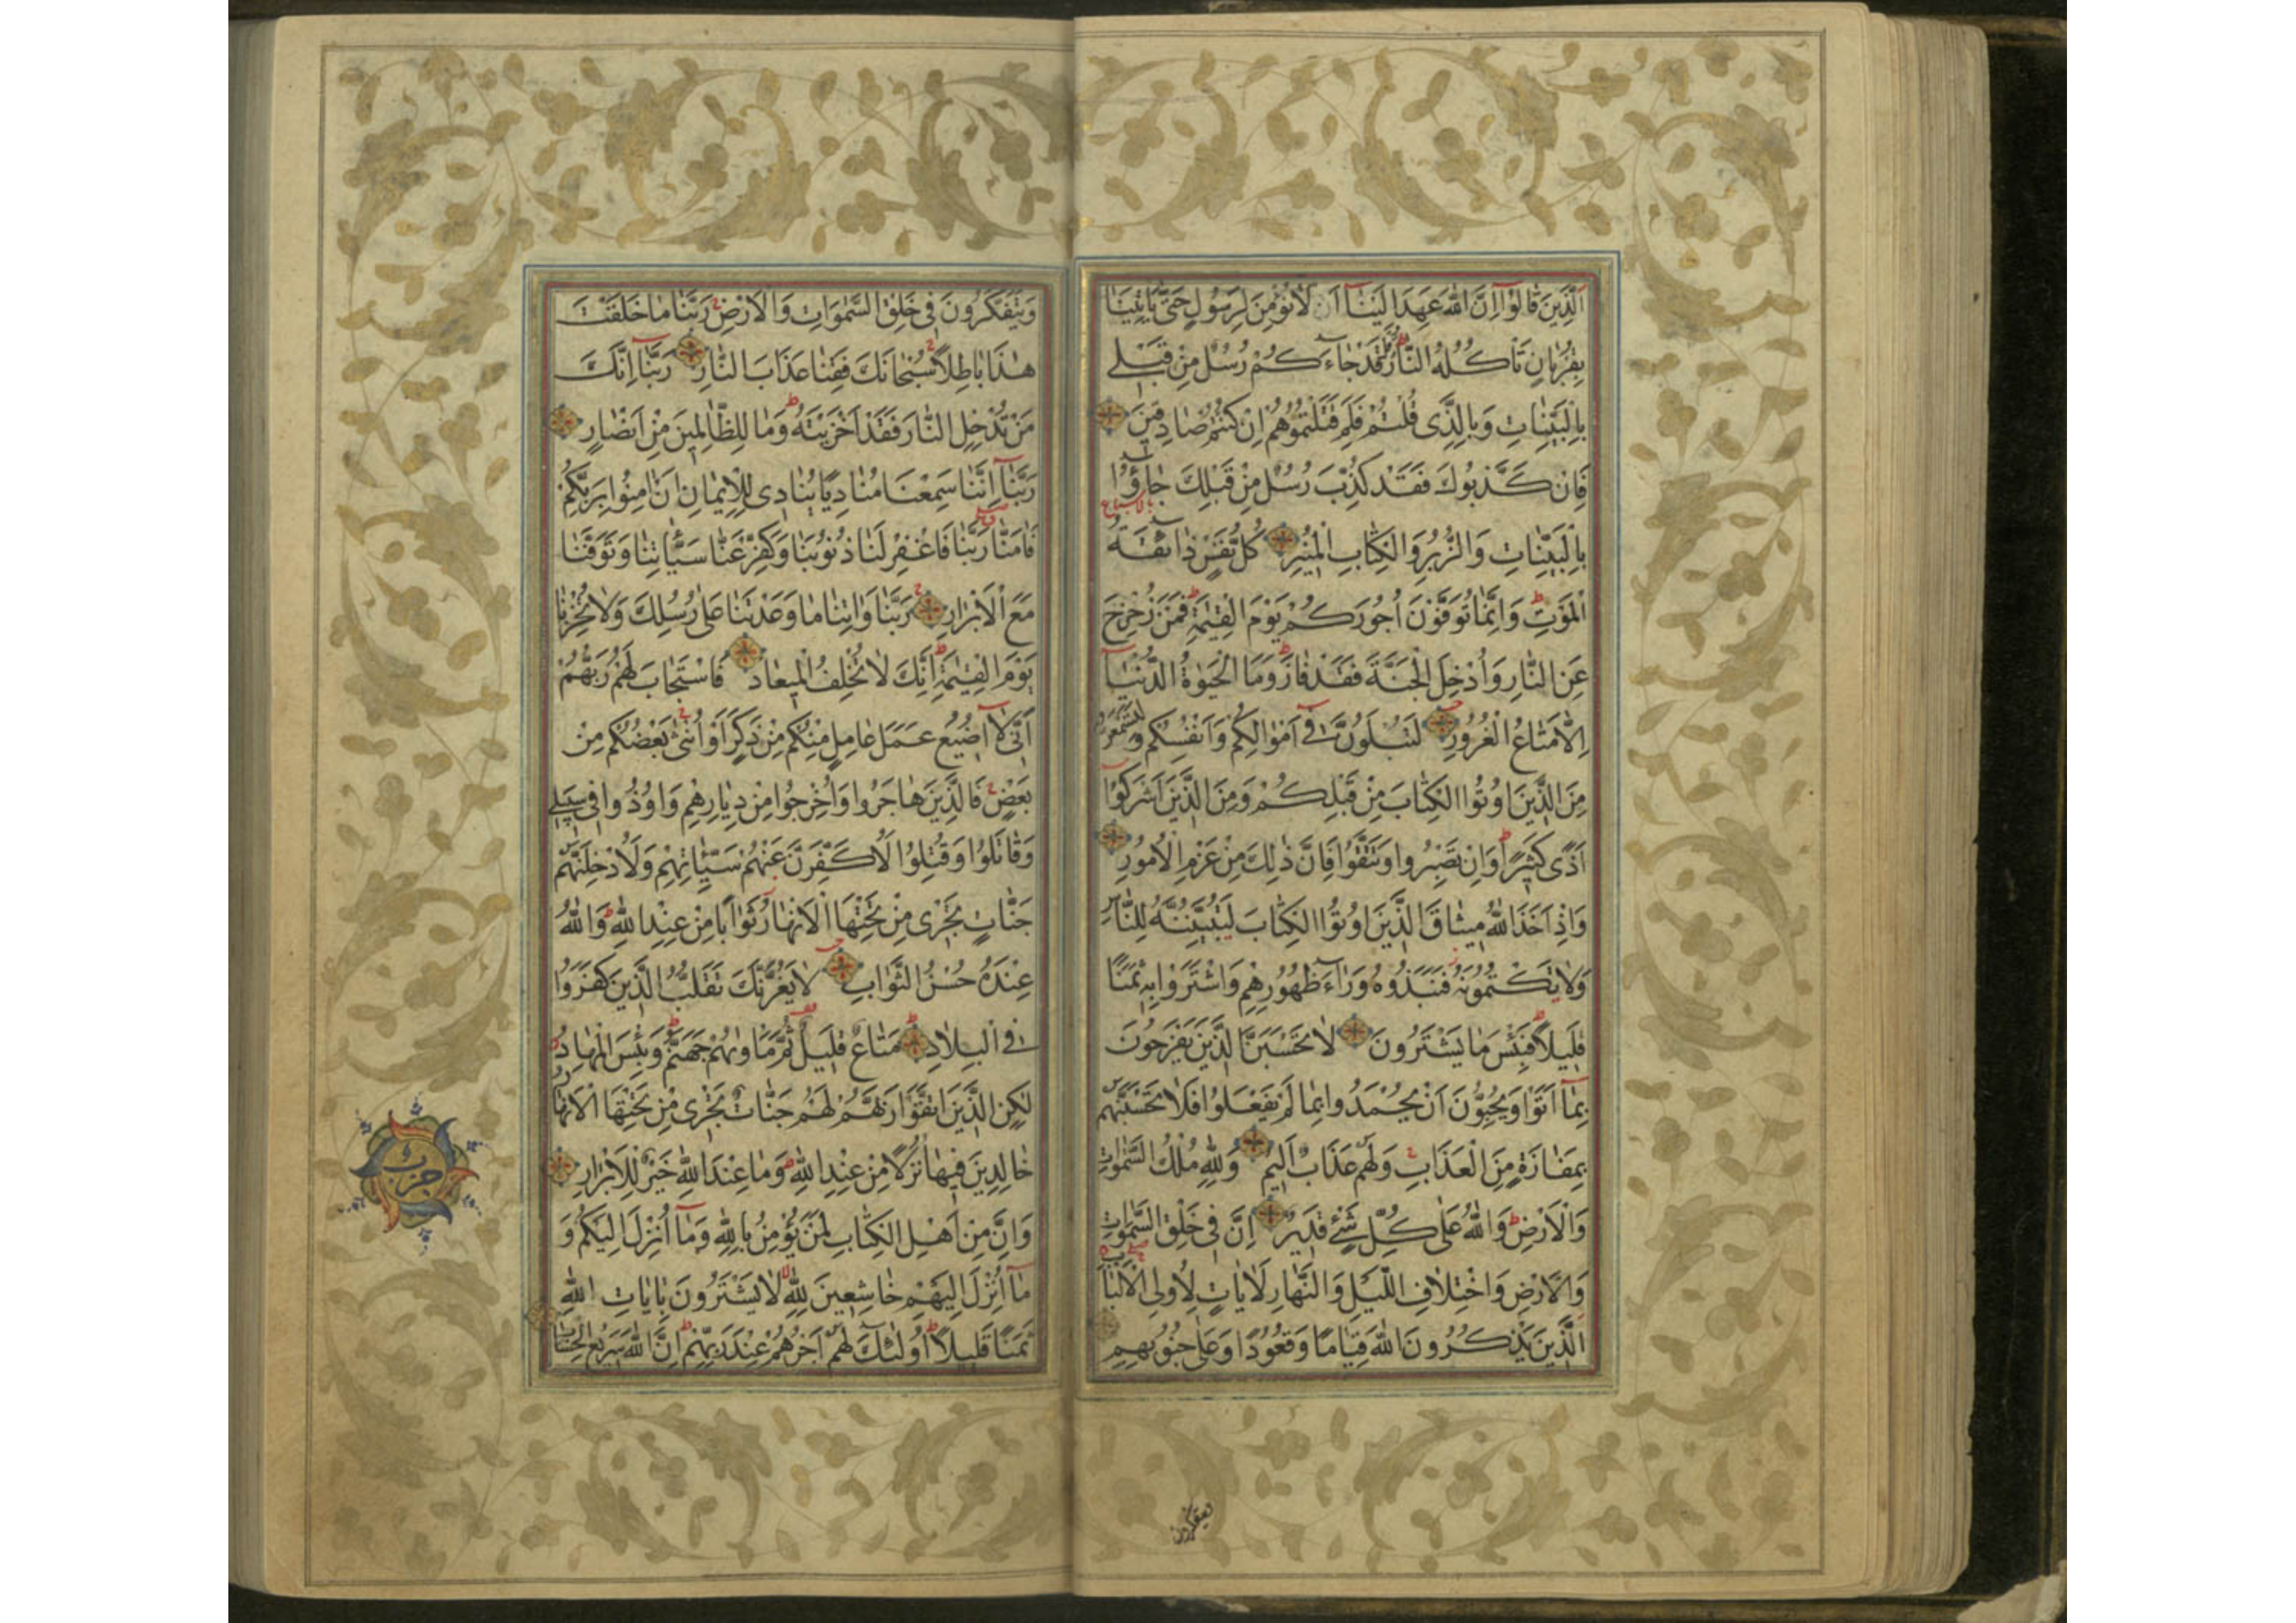 اَلَّذِينَ قَالُوا اِنَّ اللّٰهَ عَهِدَ اِلَيْنَا اَنْ لَا نُؤْمِنَ لِرَسُولٍ حَتّٰى يَاْتِيَنَا
بِقُرْبَانٍ تَاْكُلُهُ النَّارُ قُلْ قَدْ جَاءَكُمْ رُسُلٌ مِنْ قَبْلِى
بِالْبَيِّنَاتِ وَبِالَّذِى قُلْتُمْ فَلِمَ قَتَلْتُمُوهُمْ اِنْ كُنْتُمْ صَادِقِينَ
فَاِنْ كَذَّبُوكَ فَقَدْ كُذِّبَ رُسُلٌ مِنْ قَبْلِكَ جَاؤُا
بِالْبَيِّنَاتِ وَالزُّبُرِ وَالْكِتَابِ الْمُنِيرِ كُلُّ نَفْسٍ ذَائِقَةُ
الْمَوْتِ وَاِنَّمَا تُوَفَّوْنَ اُجُورَكُمْ يَوْمَ الْقِيٰمَةِ فَمَنْ زُحْزِحَ
عَنِ النَّارِ وَاُدْخِلَ الْجَنَّةَ فَقَدْ فَازَ وَمَا الْحَيٰوةُ الدُّنْيَا
اِلَّا مَتَاعُ الْغُرُورِ لَتُبْلَوُنَّ فِى اَمْوَالِكُمْ وَاَنْفُسِكُمْ وَلَتَسْمَعُنَّ
مِنَ الَّذِينَ اُوتُوا الْكِتَابَ مِنْ قَبْلِكُمْ وَمِنَ الَّذِينَ اَشْرَكُوا
اَذًى كَثِيرًا وَاِنْ تَصْبِرُوا وَتَتَّقُوا فَاِنَّ ذٰلِكَ مِنْ عَزْمِ الْاُمُورِ
وَاِذْ اَخَذَ اللّٰهُ مِيثَاقَ الَّذِينَ اُوتُوا الْكِتَابَ لَتُبَيِّنُنَّهُ لِلنَّاسِ
وَلَا تَكْتُمُونَهُ فَنَبَذُوهُ وَرَاءَ ظُهُورِهِمْ وَاشْتَرَوْا بِهِ ثَمَنًا
قَلِيلًا فَبِئْسَ مَا يَشْتَرُونَ لَا تَحْسَبَنَّ الَّذِينَ يَفْرَحُونَ
بِمَا اَتَوْا وَيُحِبُّونَ اَنْ يُحْمَدُوا بِمَا لَمْ يَفْعَلُوا فَلَا تَحْسَبَنَّهُمْ
بِمَفَازَةٍ مِنَ الْعَذَابِ وَلَهُمْ عَذَابٌ اَلِيمٌ وَلِلّٰهِ مُلْكُ السَّمٰوَاتِ
وَالْاَرْضِ وَاللّٰهُ عَلٰى كُلِّ شَىْءٍ قَدِيرٌ اِنَّ فِى خَلْقِ السَّمٰوَاتِ
وَالْاَرْضِ وَاخْتِلَافِ اللَّيْلِ وَالنَّهَارِ لَاٰيَاتٍ لِاُولِى الْاَلْبَابِ
الَّذِينَ يَذْكُرُونَ اللّٰهَ قِيَامًا وَقُعُودًا وَعَلٰى جُنُوبِهِمْ
ويتفكرون
وَيَتَفَكَّرُونَ فِى خَلْقِ السَّمٰوَاتِ وَالْاَرْضِ رَبَّنَا مَا خَلَقْتَ
هٰذَا بَاطِلًا سُبْحَانَكَ فَقِنَا عَذَابَ النَّارِ رَبَّنَا اِنَّكَ
مَنْ تُدْخِلِ النَّارَ فَقَدْ اَخْزَيْتَهُ وَمَا لِلظَّالِمِينَ مِنْ اَنْصَارٍ
رَبَّنَا اِنَّنَا سَمِعْنَا مُنَادِيًا يُنَادِى لِلْاِيمَانِ اَنْ اٰمِنُوا بِرَبِّكُمْ
فَاٰمَنَّا رَبَّنَا فَاغْفِرْ لَنَا ذُنُوبَنَا وَكَفِّرْ عَنَّا سَيِّاٰتِنَا وَتَوَفَّنَا
مَعَ الْاَبْرَارِ رَبَّنَا وَاٰتِنَا مَا وَعَدْتَنَا عَلٰى رُسُلِكَ وَلَا تُخْزِنَا
يَوْمَ الْقِيٰمَةِ اِنَّكَ لَا تُخْلِفُ الْمِيعَادَ فَاسْتَجَابَ لَهُمْ رَبُّهُمْ
اَنِّى لَا اُضِيعُ عَمَلَ عَامِلٍ مِنْكُمْ مِنْ ذَكَرٍ اَوْ اُنْثٰى بَعْضُكُمْ مِنْ
بَعْضٍ فَالَّذِينَ هَاجَرُوا وَاُخْرِجُوا مِنْ دِيَارِهِمْ وَاُوذُوا فِى سَبِيلِى
وَقَاتَلُوا وَقُتِلُوا لَاُكَفِّرَنَّ عَنْهُمْ سَيِّاٰتِهِمْ وَلَاُدْخِلَنَّهُمْ
جَنَّاتٍ تَجْرِى مِنْ تَحْتِهَا الْاَنْهَارُ ثَوَابًا مِنْ عِنْدِ اللّٰهِ وَاللّٰهُ
عِنْدَهُ حُسْنُ الثَّوَابِ لَا يَغُرَّنَّكَ تَقَلُّبُ الَّذِينَ كَفَرُوا
فِى الْبِلَادِ مَتَاعٌ قَلِيلٌ ثُمَّ مَاْوٰيهُمْ جَهَنَّمُ وَبِئْسَ الْمِهَادُ
لٰكِنِ الَّذِينَ اتَّقَوْا رَبَّهُمْ لَهُمْ جَنَّاتٌ تَجْرِى مِنْ تَحْتِهَا الْاَنْهَارُ
خَالِدِينَ فِيهَا نُزُلًا مِنْ عِنْدِ اللّٰهِ وَمَا عِنْدَ اللّٰهِ خَيْرٌ لِلْاَبْرَارِ
وَاِنَّ مِنْ اَهْلِ الْكِتَابِ لَمَنْ يُؤْمِنُ بِاللّٰهِ وَمَا اُنْزِلَ اِلَيْكُمْ وَ
مَا اُنْزِلَ اِلَيْهِمْ خَاشِعِينَ لِلّٰهِ لَا يَشْتَرُونَ بِاٰيَاتِ اللّٰهِ
ثَمَنًا قَلِيلًا اُولٰئِكَ لَهُمْ اَجْرُهُمْ عِنْدَ رَبِّهِمْ اِنَّ اللّٰهَ سَرِيعُ الْحِسَابِ
حزب